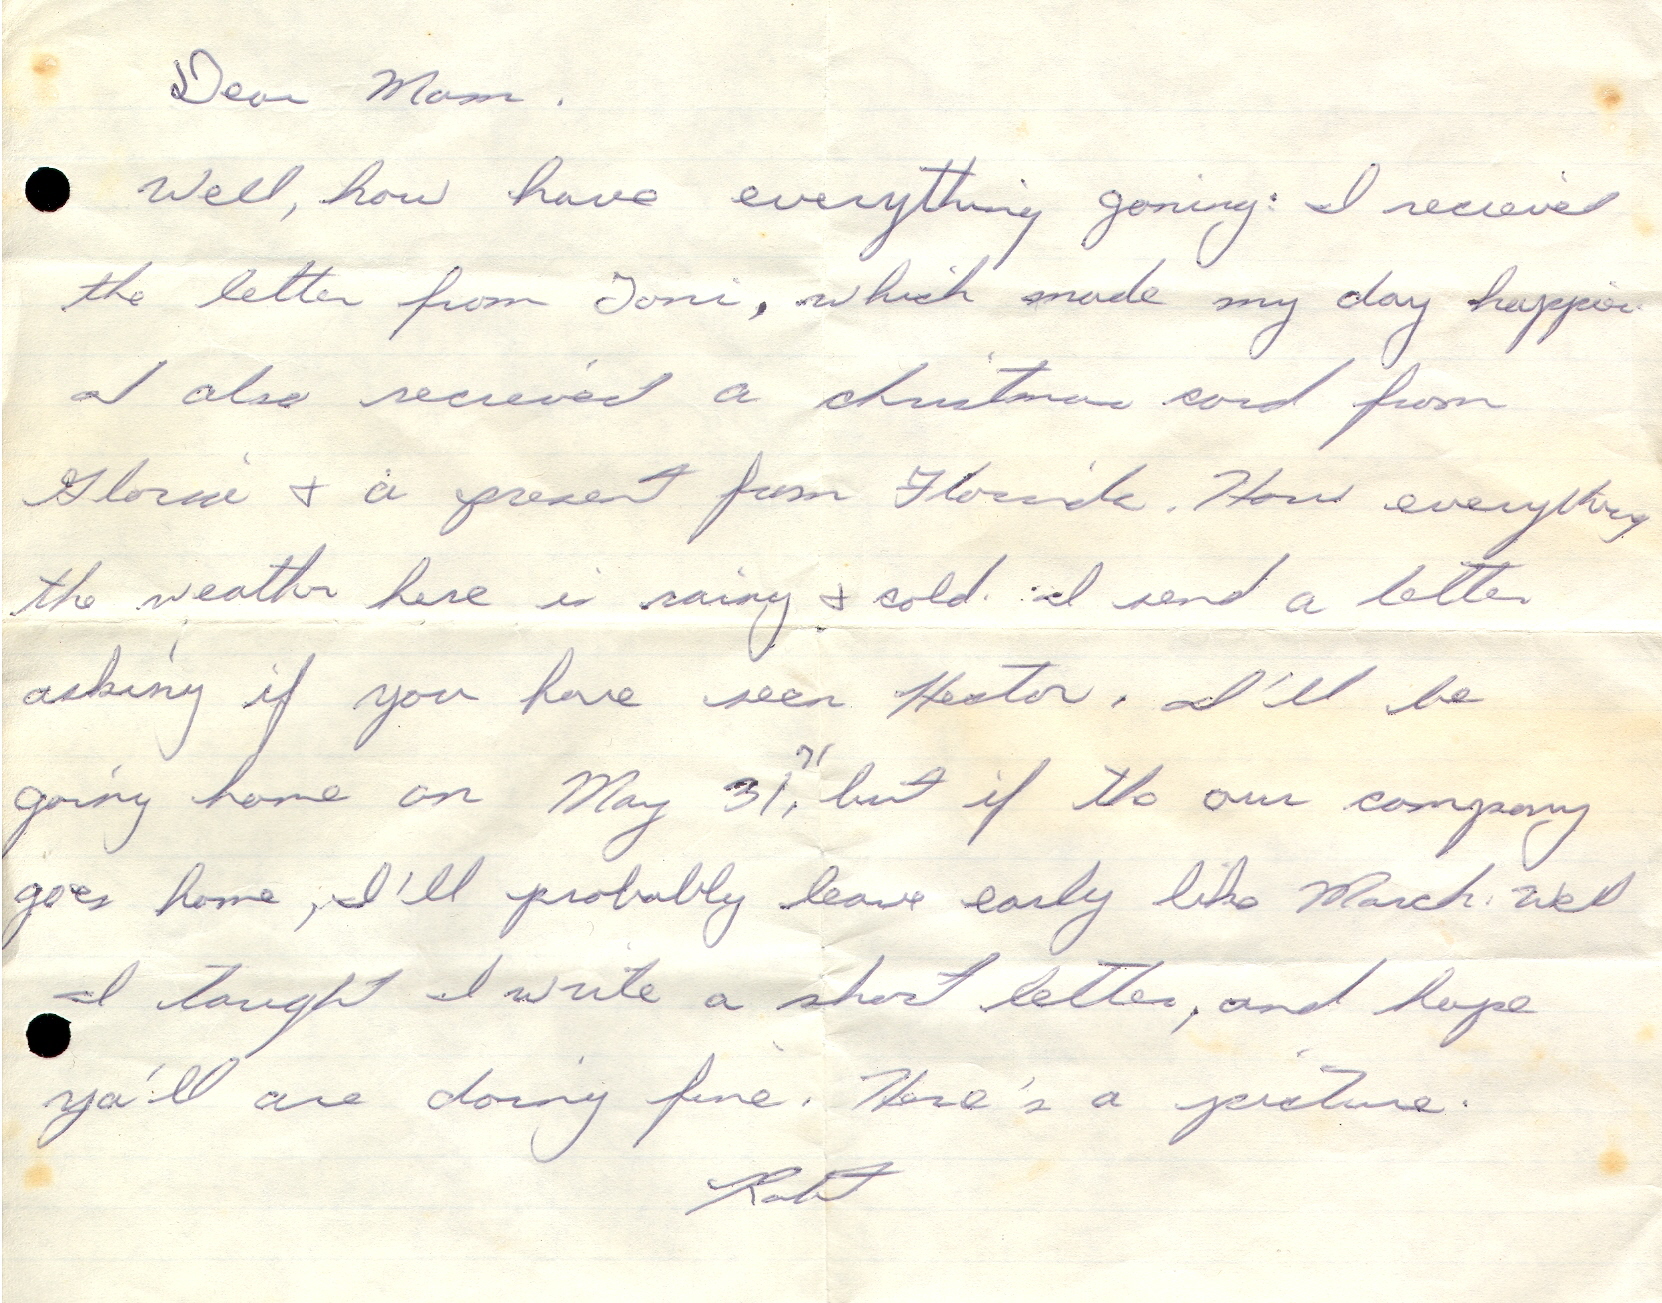 Dear Mom.
Well, how have everything goning: I recieved
the letter from Toni, which made my day happier
I also recieved a christmas card from
Gloria & a present from Florida. How everything
the weather here is rainy & cold. I send a letter
asking if you have seen Hector. I'll be
going home on May 31, 71 but if the our company
goes home, I'll probably leave early like March. Well
I taught I write a short letter, and hope
ya'll are doing fine. Here's a picture.
Robt